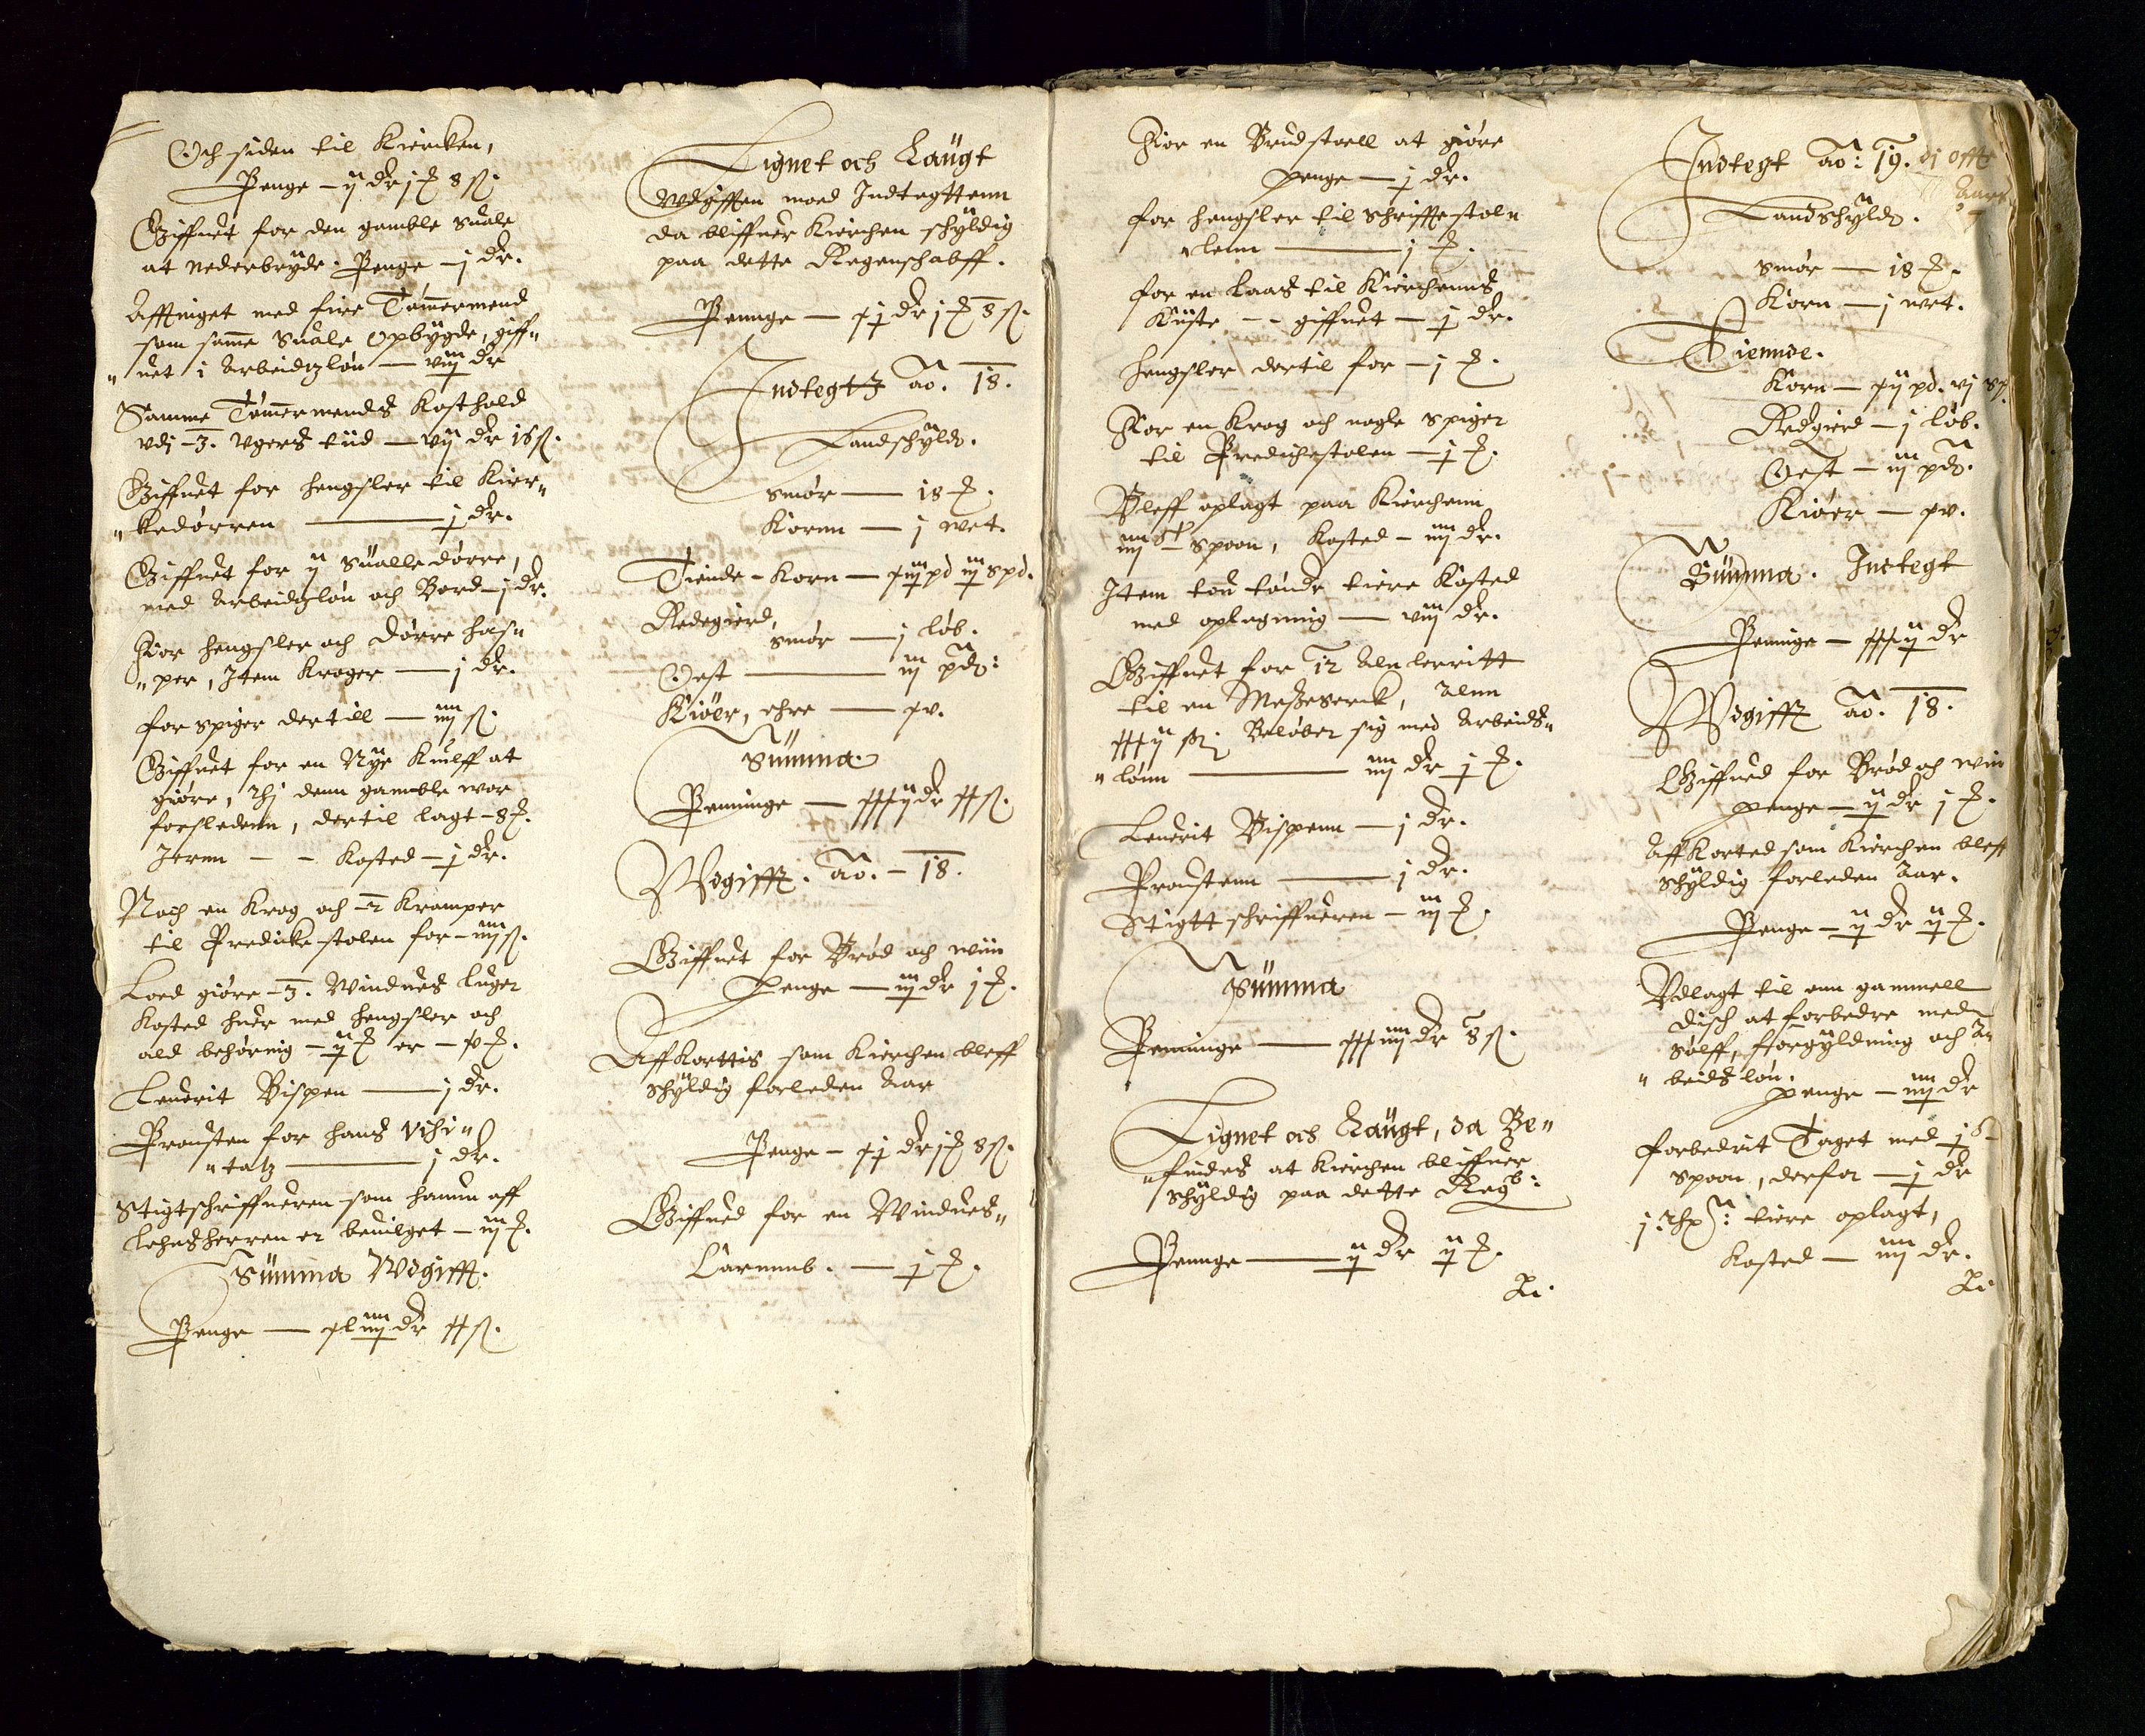 Och siden til Kiercken,
Penge — ij dr j ℔ 8 ß.
Giffuet for den gamble Suale
at nederbryde. Penge — j dr.
Affinget med fire Tømermend
som same Suale opbygde, giff„
„uet i Arbeidzløn — viij dr
Samme Tømermends Kosthold
vdj — 3. Vgers tiid — vij dr 16 ß.
Giffuet for hengsler til Kier„
„kedørren — j dr.
Giffuet for ij Sualle dørre,
med Arbeidzløn och Bord — j dr.
For hengsler och dørre has„
„per, Item Kroger — j dr.
for spiger dertill — iiij ß.
Giffuet for en Nye Kuulff at
giøre, thj denn gamble wor
forsledenn, dertil lagt — 8 ℔.
Jernn — — Kosted — j dr.
Noch en Krog och — 2 Kramper
til Predicke stolen for — iiij ß.
Loed giøre — 3. Windues luger
Kosted huer med hengsler och
ald behørnig — ij ℔ er —
Leuerit Bispen — j dr.
Prousten for hans visi„
„tatz — j dr.
Stigtschriffueren som hanum aff
Lehnsherren er beuilget — iij ℔.
Summa Vdgifft.
Penge — xliiij dr xx ß.
Lignet och Laugt
Vdgifften moed Indtegttenn
da bliffuer Kierchen schyldig
paa dette Regenschabff.
Pennge — xj dr j ℔ 8 ß.
Indtegtz ao. 18.
Landschyld.
Smør — 18 ℔.
Kornn — j wet.
Tiende — Korn — xiij pd iij spd.
Redegierd,
Smør — j løb.
Oest — iij pd:
Kiøer, ehre — xv.
Summa
Penninge — xxxij dr xx ß.
Vdgifft. ao. — 18.
Giffuet for Brød och wiin
Penge — iij dr j ℔.
Aff Korttis som Kierchen bleff
schyldig forleden Aar
Penge — xj dr j ℔ 8 ß.
Giffued for en Windues„
Carmmb. — j ℔.
For en Brudstoell at giøre
penge — j dr.
for hengsler til schrifftestoln
„lenn — j ℔.
for en Laas til Kierchenns
Kiiste — — giffuet — j dr.
Hengsler dertil for — j ℔.
For en Krog och nogle spiger
til Predichestolen — j ℔.
Bleff oplagt paa Kierchenn
iiij spoon, Kosted — iiij dr.
Item tou tønde tiere Kosted
med oplegning — viij dr.
Giffuet for 12 Aln lerritt
til en Messeserck, Alnn
xxxij ß; Beløber sig med Arbeids„
„lønn — iiij dr j ℔.
Leuerit Bispenn — j dr.
Proustenn — j dr.
Stigtt schriffueren — iij ℔.
Summa
Penninge — xxxiiij dr 8 ß.
Lignet och Laugt, da Be„
„findes at Kierchen bliffuer
schyldig paa dette Regb:
Pennge — ij dr ij ℔.
Indtegt ao: 19.
Landschyld.
Smør — 18 ℔.
Korn — j wet.
Tiennde.
Korn — xij pd. vj sp.
Redgierd — j løb.
Oest — iij pd.
Kiøer — xv.
Summa. Indtegt
Penninge — xxxij dr
Vdgifft ao. 18.
Giffued for Brød och wiin
penge — ij dr j ℔.
Aff Korted som Kierchen bleff
schyldig forleden Aar.
Penge — ij dr ij ℔.
Vdlagt til enn gammell
disch at forbedre med
Sølff, forgyldning och Ar
„beidsløn.
penge — iiij dr
forbedrit Taget med
spoon, derfor — j dr
tiere oplagt,
Kosted — iiij dr.